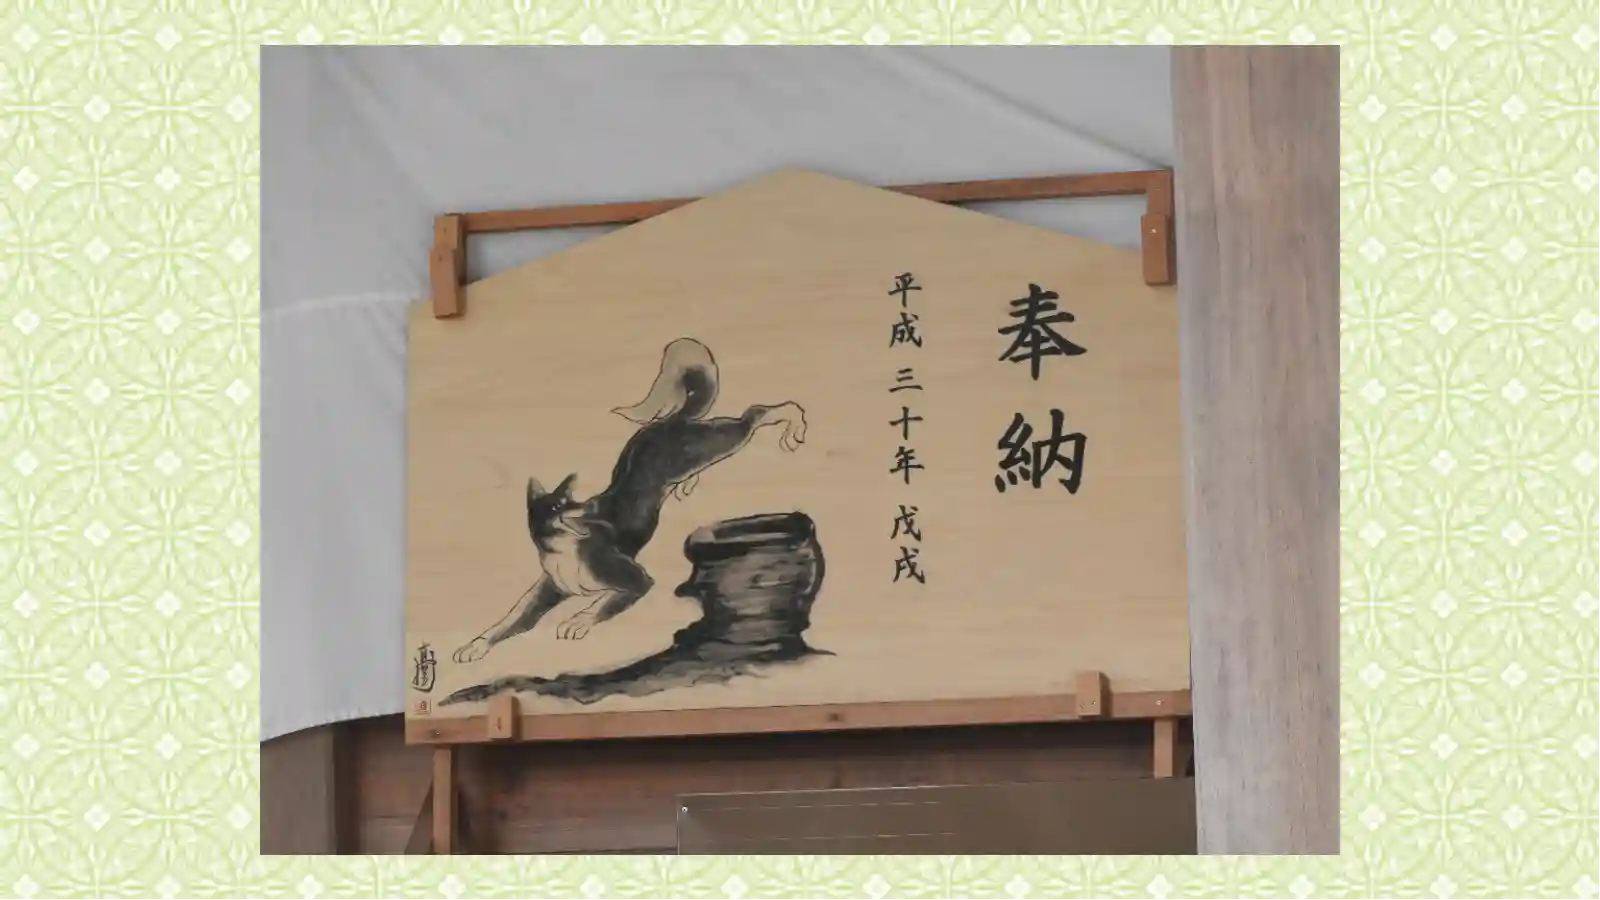 奉納
平成三十年 戊戌